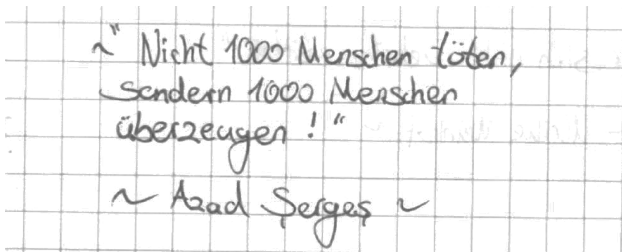 ~" Nicht 1000 Menschen töten,
sondern 1000 Menschen
überzeugen ! "
~ Azad Şergeş ~